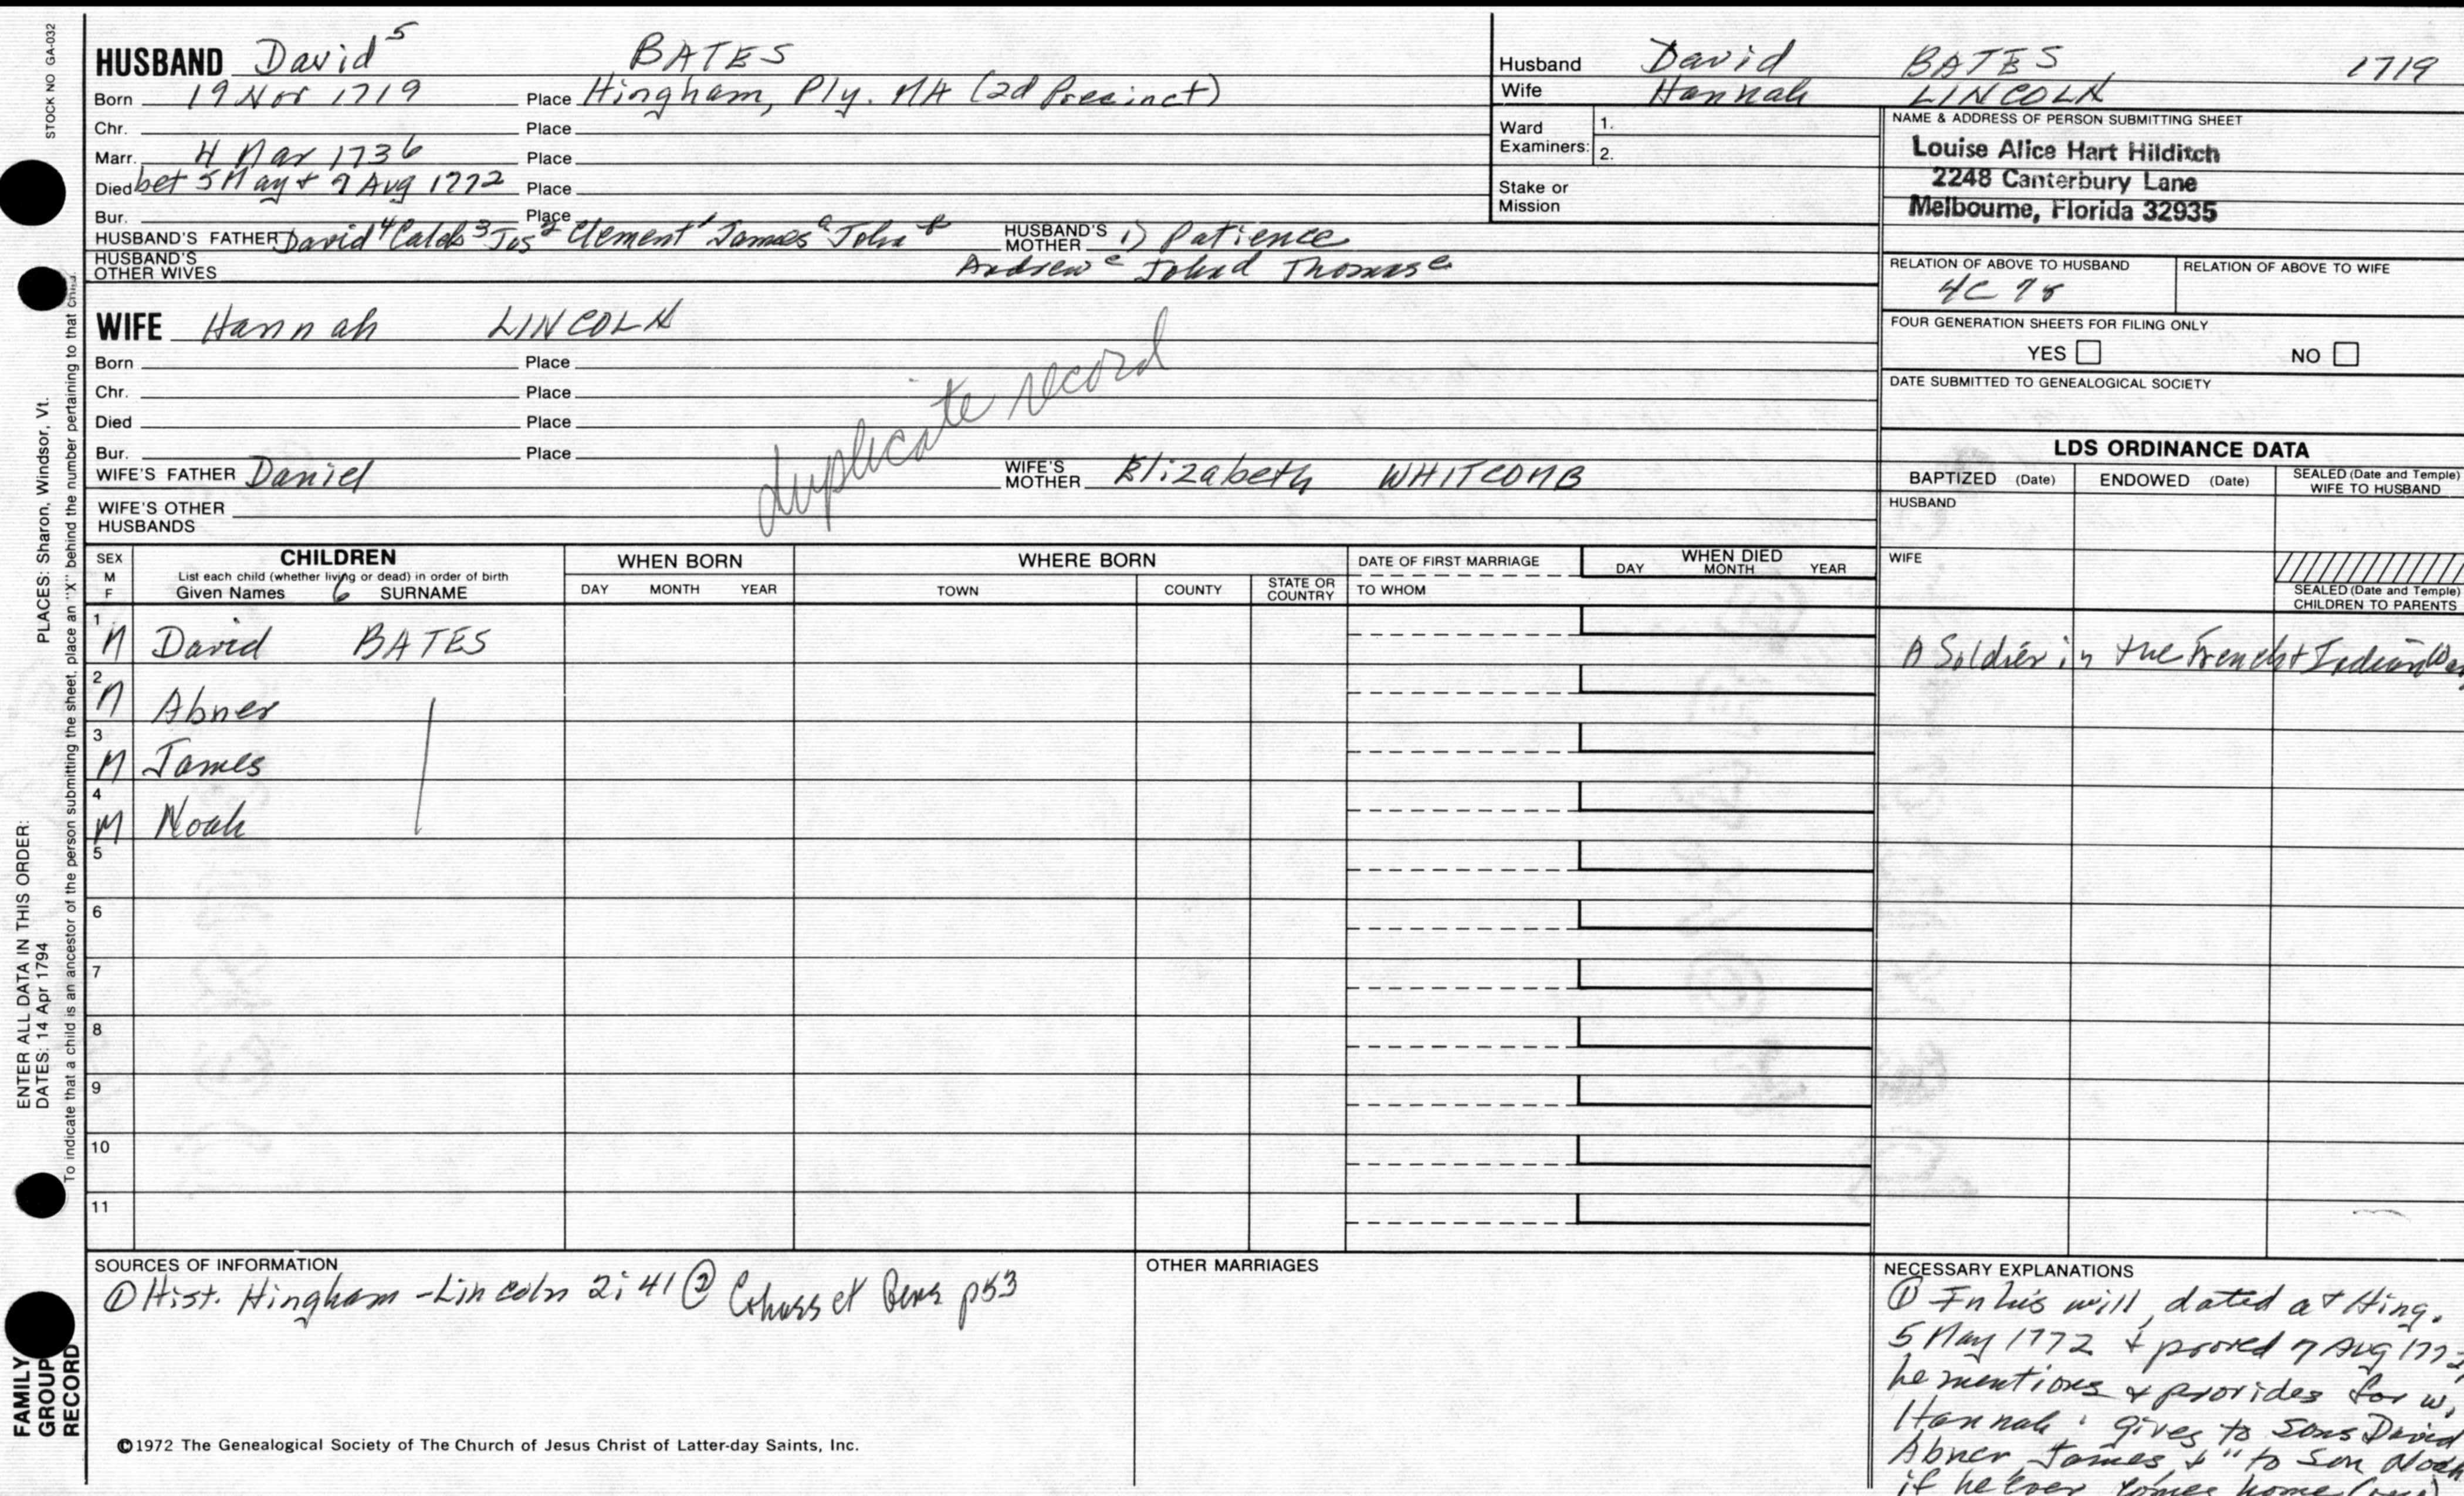 STOCK NO GA-032
HUSBAND David 5 BATES
Born 19 Nov 1719 Place Hingham, Ply. MA (2d Precinct)
Chr. Place
Marr. 4 Mar 1736 Place
Died bet 5 May + 7 Aug 1772 Place
Bur. Place
HUSBAND'S FATHER David 4 Caleb 3 Jos 2 Clement 1 James John HUSBAND'S MOTHER 1) Patience
HUSBAND'S OTHER WIVES Andrew c John d Thomas e
Husband David BATES 1719
Wife Hannah LINCOLN
Ward Examiners: 1.
2.
Stake or Mission
NAME & ADDRESS OF PERSON SUBMITTING SHEET
Louise Alice Hart Hilditch
2248 Canterbury Lane
Melbourne, Florida 32935
RELATION OF ABOVE TO HUSBAND RELATION OF ABOVE TO WIFE
4C 7r
FOUR GENERATION SHEETS FOR FILING ONLY
YES NO
DATE SUBMITTED TO GENEALOGICAL SOCIETY
WIFE Hannah LINCOLN
Born Place
Chr. Place
Died Place
Bur. Place
duplicate record
WIFE'S FATHER Daniel WIFE'S MOTHER Elizabeth WHITCOMB
WIFE'S OTHER HUSBANDS
LDS ORDINANCE DATA
BAPTIZED (Date) ENDOWED (Date) SEALED (Date and Temple) WIFE TO HUSBAND
HUSBAND
WIFE
SEALED (Date and Temple) CHILDREN TO PARENTS
SEX M F
CHILDREN
List each child (whether living or dead) in order of birth
Given Names 6 SURNAME
WHEN BORN
DAY MONTH YEAR
WHERE BORN
TOWN COUNTY STATE OR COUNTRY
DATE OF FIRST MARRIAGE
TO WHOM
WHEN DIED
DAY MONTH YEAR
1 M David BATES A Soldier in the French + Indian War
2 M Abner
3 M James
4 M Noah
5
6
7
8
9
10
11
SOURCES OF INFORMATION
① Hist. Hingham - Lincoln 2:41 ② Cohasset Gens p53
OTHER MARRIAGES
NECESSARY EXPLANATIONS
① In his will, dated at Hing.
5 May 1772 + proved 7 Aug 1772,
he mentions & provides for w.
Hannah; gives to sons David
Abner James + "to Son Noah
if he ever comes home
©1972 The Genealogical Society of The Church of Jesus Christ of Latter-day Saints, Inc.
ENTER ALL DATA IN THIS ORDER:
DATES: 14 Apr 1794 PLACES: Sharon, Windsor, Vt.
To indicate that a child is an ancestor of the person submitting the sheet, place an "X" behind the number pertaining to that child.
FAMILY
GROUP
RECORD